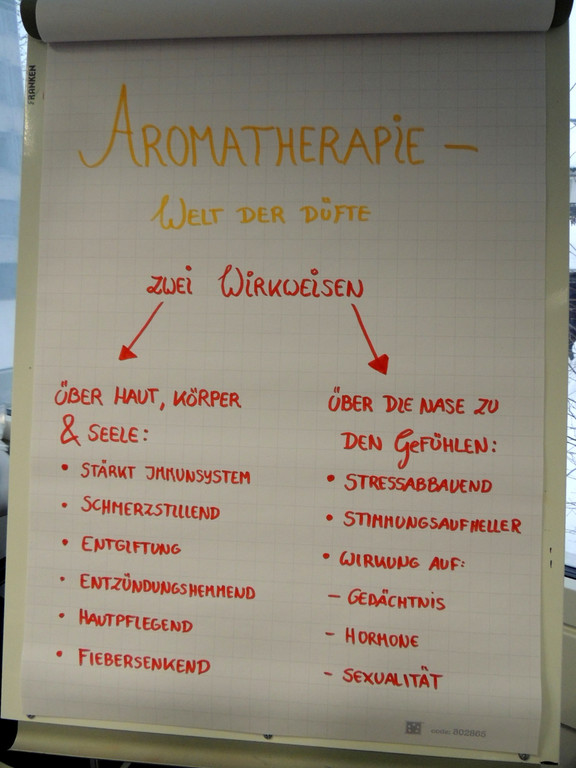 FRANKEN
AROMATHERAPIE –
WELT DER DÜFTE
ZWEI WIRKWEISEN
ÜBER HAUT, KÖRPER
& SEELE:
• STÄRKT IMMUNSYSTEM
• SCHMERZSTILLEND
• ENTGIFTUNG
• ENTZÜNDUNGSHEMMEND
• HAUTPFLEGEND
• FIEBERSENKEND
ÜBER DIE NASE ZU
DEN GEFÜHLEN:
• STRESSABBAUEND
• STIMMUNGSAUFHELLER
• WIRKUNG AUF:
– GEDÄCHTNIS
– HORMONE
– SEXUALITÄT
902865